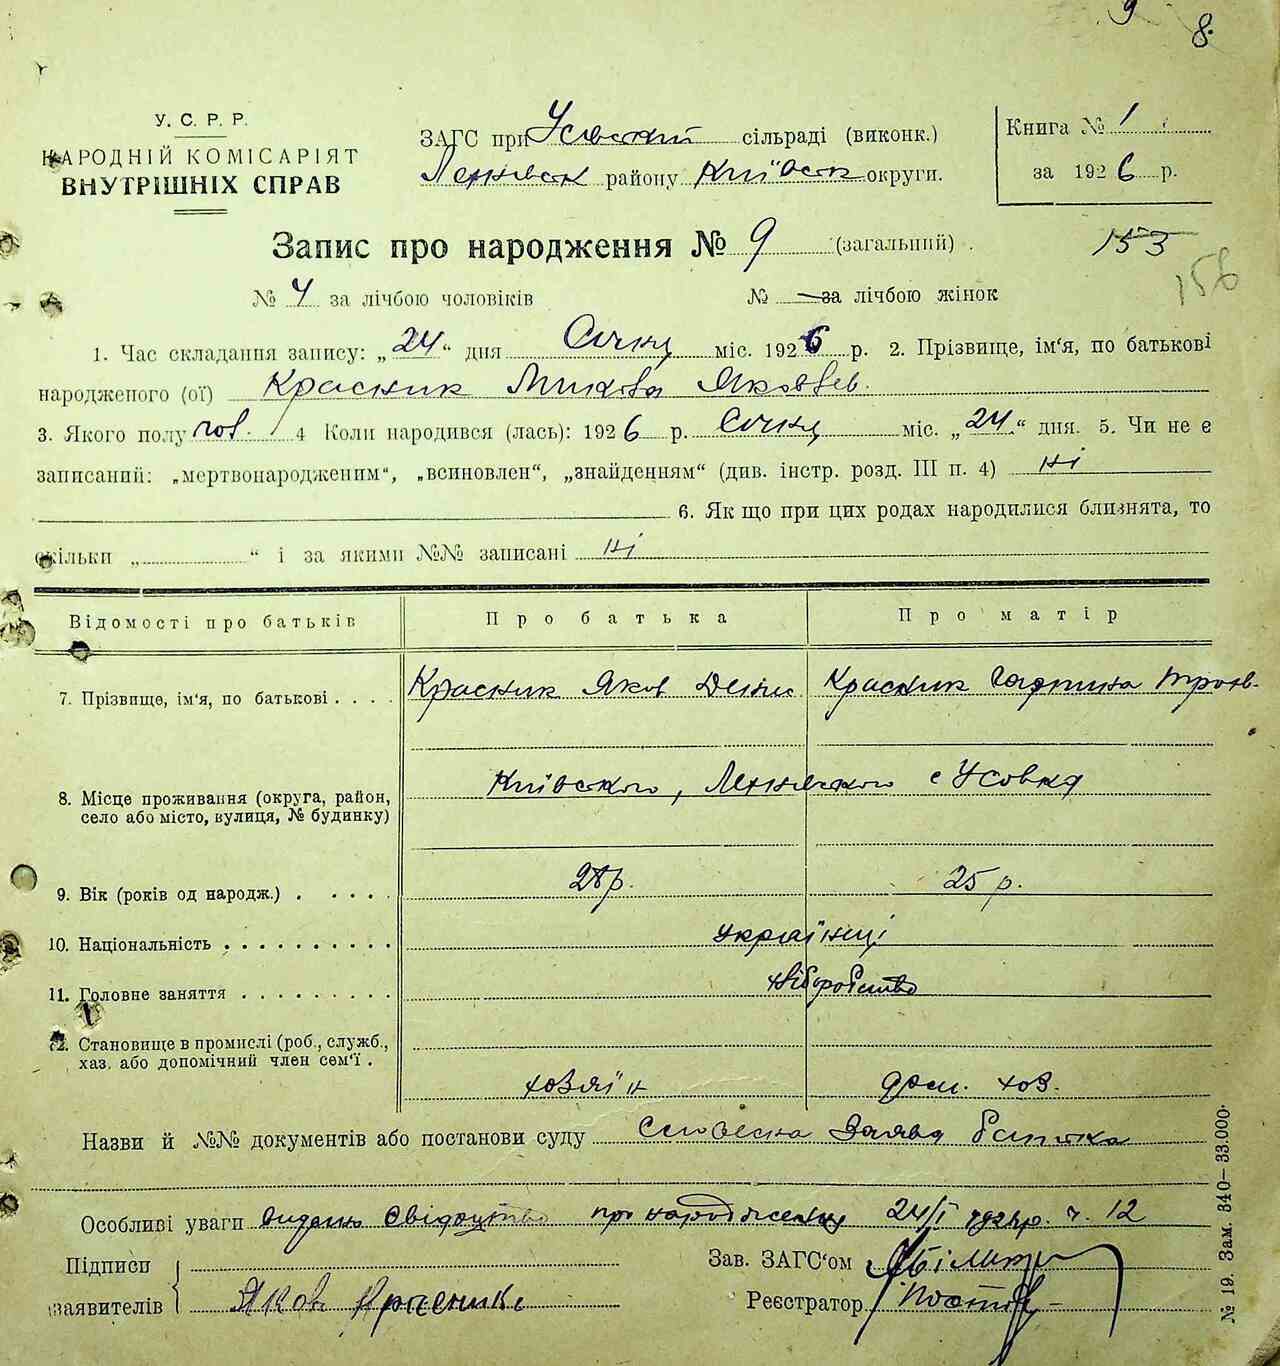 9
8.
У. С. Р. Р.
НАРОДНІЙ КОМІСАРІЯТ
ВНУТРІШНІХ СПРАВ
ЗАГС при Усовский сільраді (виконк.)
району Київск округи.
Книга № 1
за 1926 р.
Запис про народження № 9 (загальний).
153
156
№ 4 за лічбою чоловіків № — за лічбою жінок
1. Час складання запису: „24“ дня Січня міс. 1926 р. 2. Прізвище, ім‘я, по батькові
народженого (ої) Красник Микола Яковлев.
3. Якого полу чов. 4 Коли народився (лась): 1926 р. Січня міс. „24“ дня. 5. Чи не є
записаний: „мертвонародженим“, „всиновлен“, „знайденням“ (див. інстр. розд. III п. 4) ні
6. Як що при цих родах народилися близнята, то
скільки „ “ і за якими №№ записані ні
Відомості про батьків Про батька Про матір
7. Прізвище, ім‘я, по батькові . . . . Красник Яков Денис Красник
8. Місце проживання (округа, район,
село або місто, вулиця, № будинку)
Київского, с Усовка
9. Вік (років од народж.) . . . . . 28р. 25 р.
10. Національність . . . . . . . . . . українці
11. Головне заняття . . . . . . . . . хліборобство
12. Становище в промислі (роб., служб.,
хаз. або допомічний член сем‘ї .
хозяїн дом. хоз.
Назви й №№ документів або постанови суду Словесна заява батька
Особливі уваги видано свідоцтво про народження 24/I ч. 12
Підписи
заявителів
Яков Красник
Зав. ЗАГС‘ом
Реєстратор
№ 19. Зам. 340—33.000.